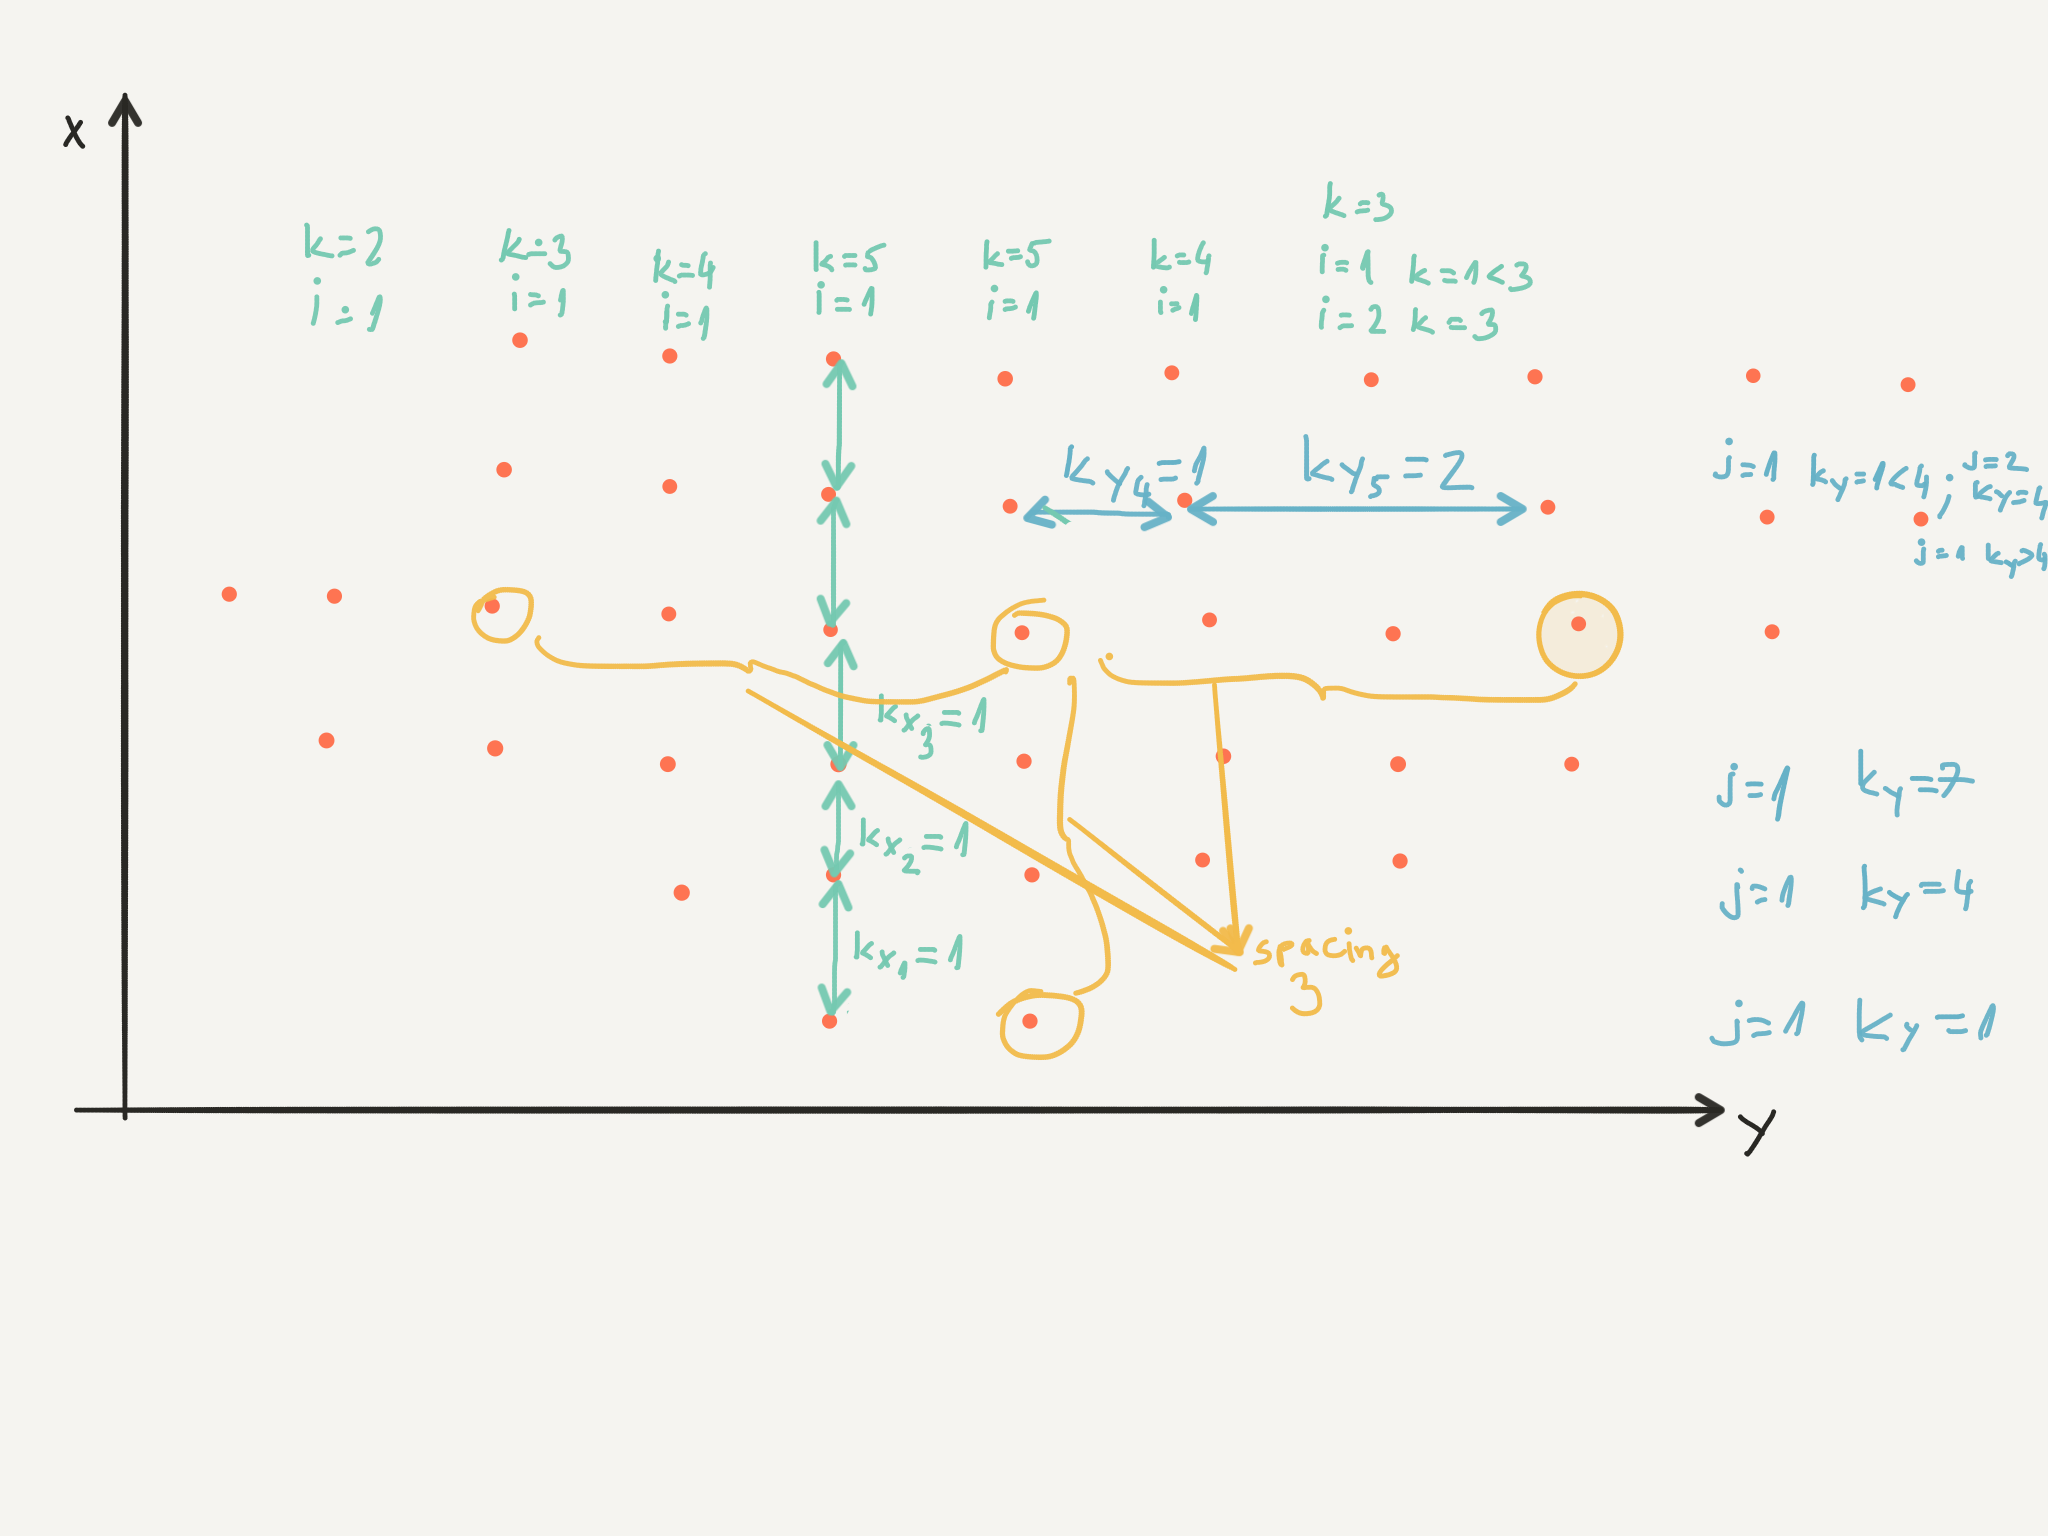 x
k=2
i=1
k=3
i=1
k=4
i=1
k=5
i=1
k=5
i=1
k=4
i=1
k=3
i=1 k=1<3
i=2 k=3
ky4=1
ky5=2
j=1 ky=1<4; j=2 ky=4
j=1 ky>4
kx3=1
kx2=1
kx1=1
j=1 ky=7
j=1 ky=4
j=1 ky=1
spacing
3
y